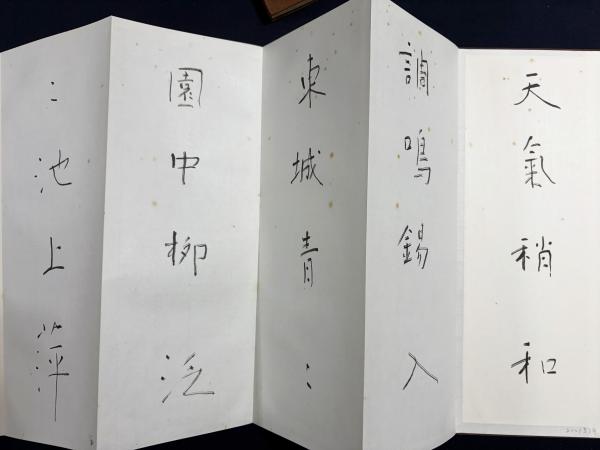 天氣稍和
調鳴錫入
東城青〻
園中柳泛
〻池上萍